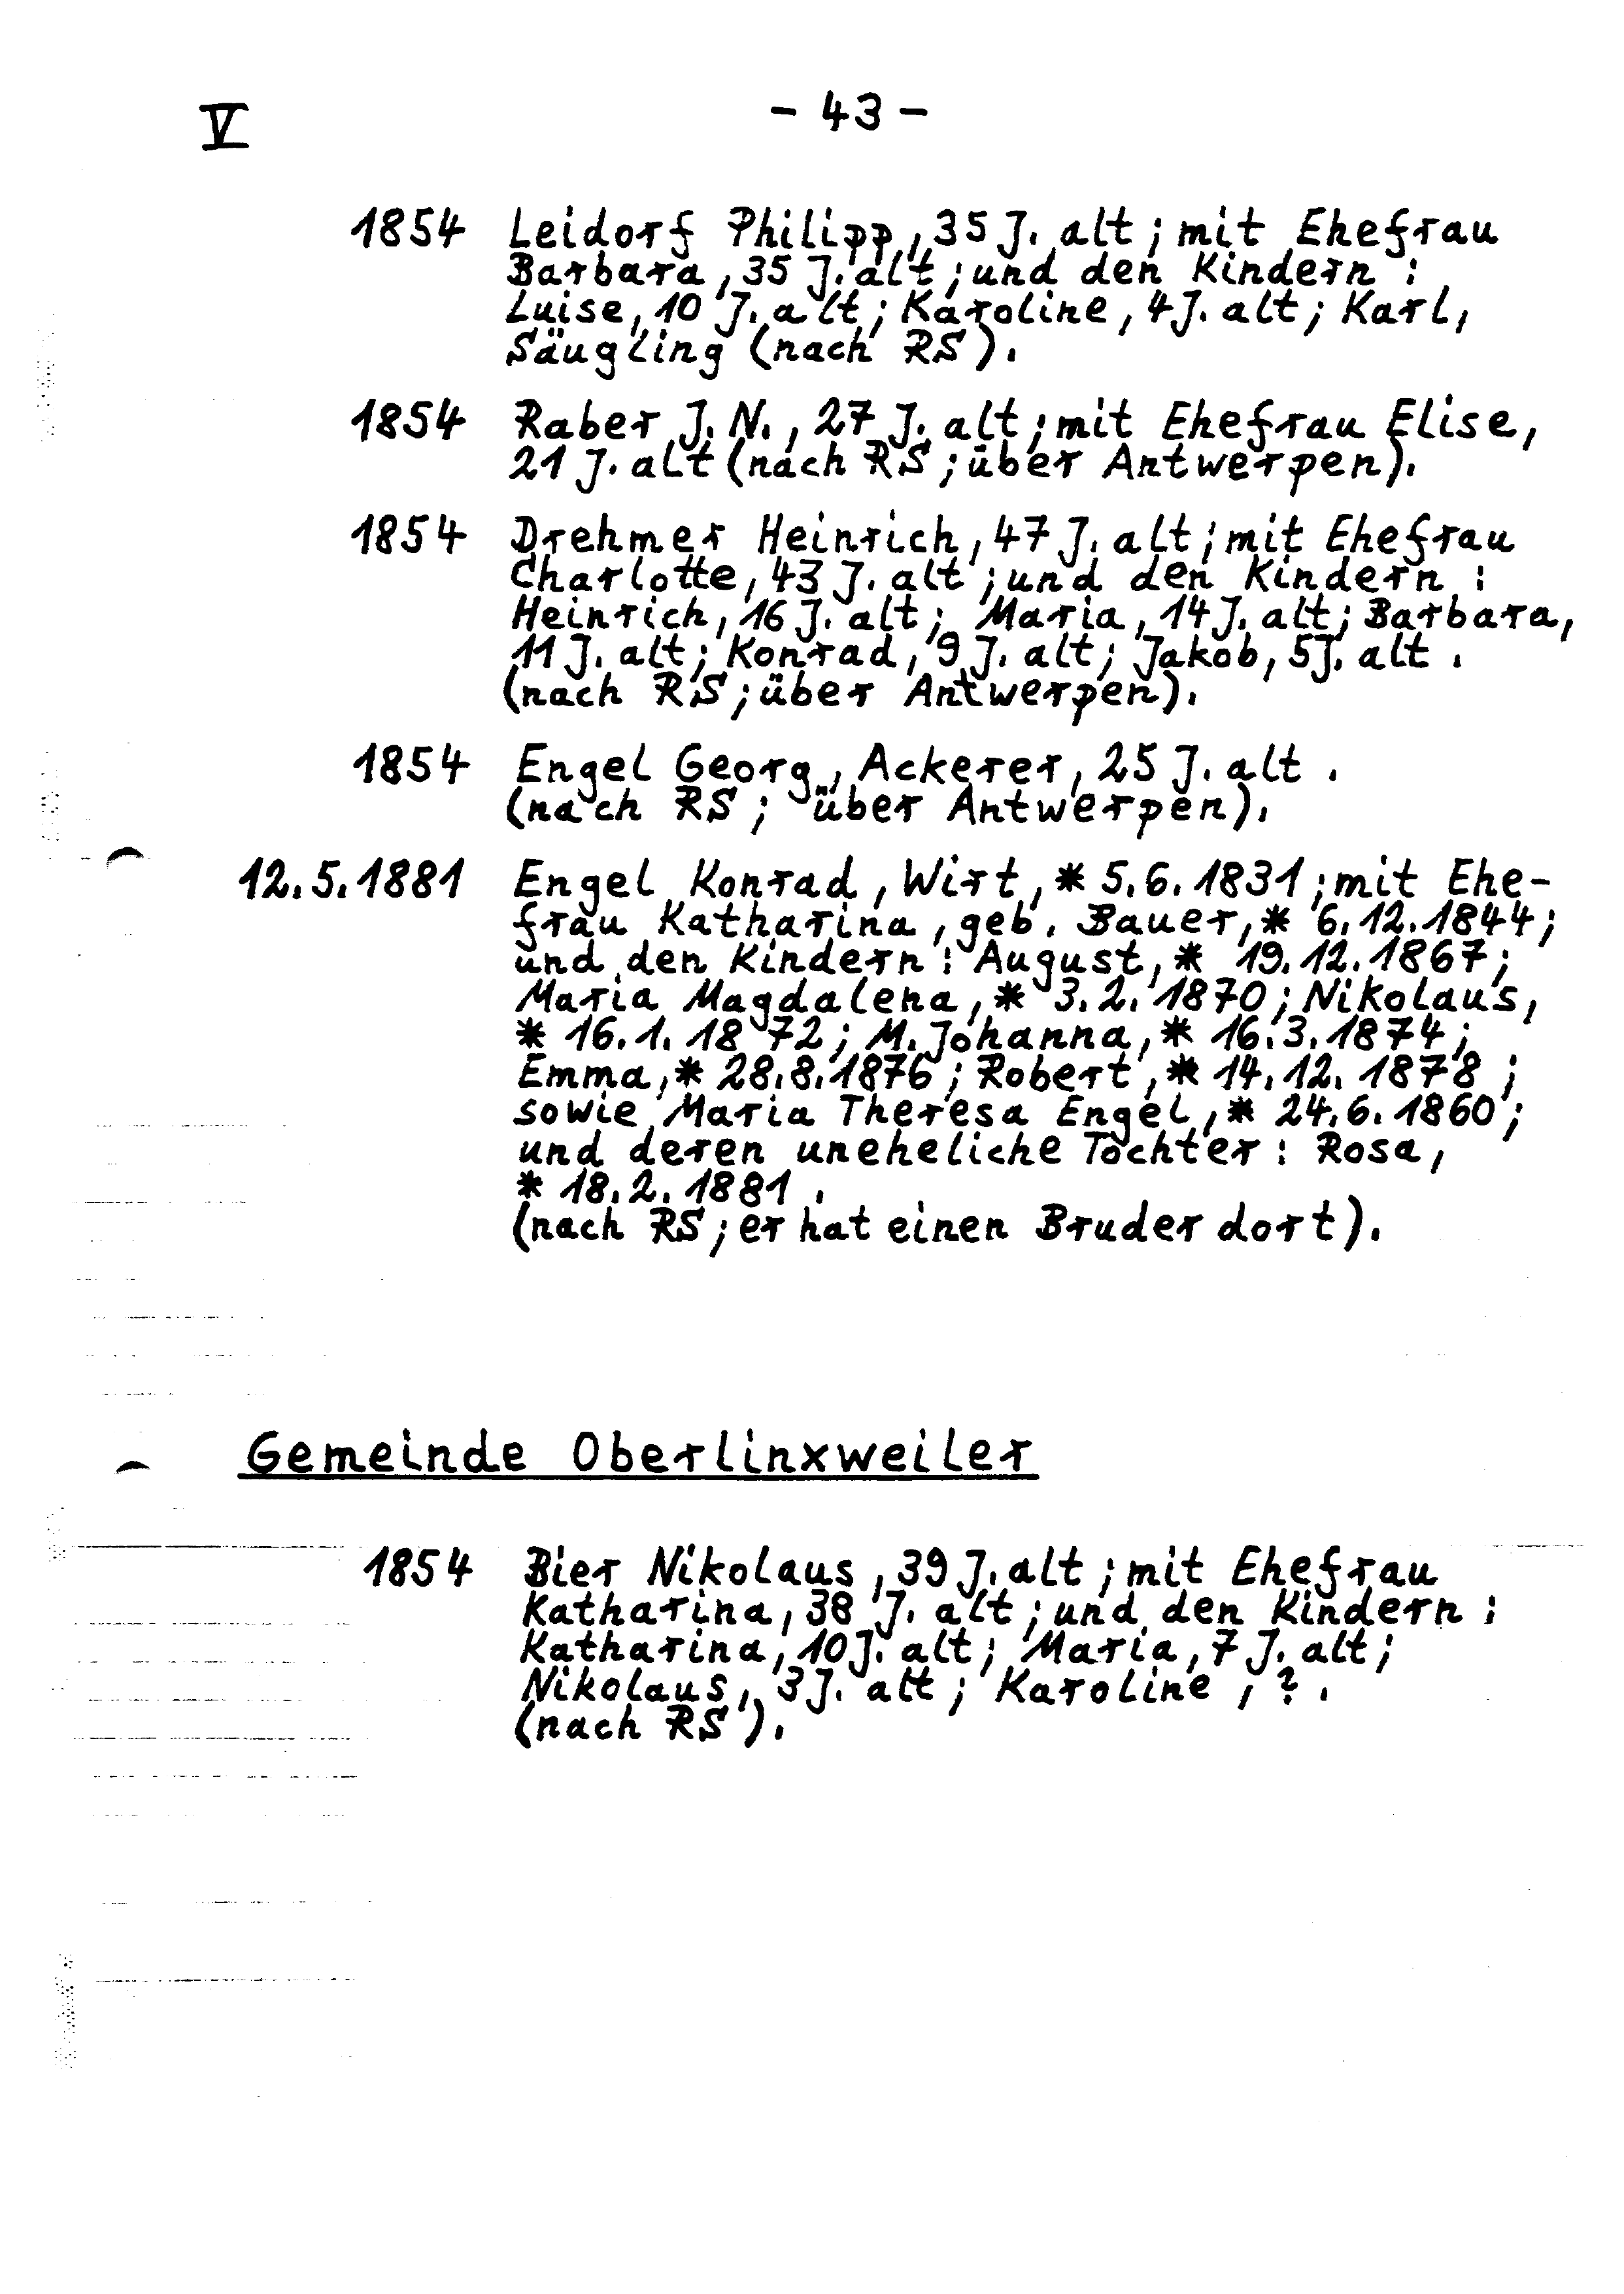 V
- 43 -
1854 Leidorf Philipp, 35 J. alt; mit Ehefrau
Barbara, 35 J. alt; und den Kindern:
Luise, 10 J. alt; Karoline, 4 J. alt; Karl,
Säugling (nach RS).
1854 Raber J. N., 27 J. alt; mit Ehefrau Elise,
21 J. alt (nach RS; über Antwerpen).
1854 Drehmer Heinrich, 47 J. alt; mit Ehefrau
Charlotte, 43 J. alt; und den Kindern:
Heinrich, 16 J. alt; Maria, 14 J. alt; Barbara,
11 J. alt; Konrad, 9 J. alt; Jakob, 5 J. alt.
(nach RS; über Antwerpen).
1854 Engel Georg, Ackerer, 25 J. alt.
(nach RS; über Antwerpen).
12.5.1881 Engel Konrad, Wirt, * 5.6.1831; mit Ehe-
frau Katharina, geb. Bauer, * 6.12.1844;
und den Kindern: August, * 19.12.1867;
Maria Magdalena, * 3.2.1870; Nikolaus,
* 16.1.1872; M. Johanna, * 16.3.1874;
Emma, * 28.8.1876; Robert, * 14.12.1878;
sowie Maria Theresa Engel, * 24.6.1860;
und deren uneheliche Tochter: Rosa,
* 18.2.1881.
(nach RS; er hat einen Bruder dort).
Gemeinde Oberlinxweiler
1854 Bier Nikolaus, 39 J. alt; mit Ehefrau
Katharina, 38 J. alt; und den Kindern:
Katharina, 10 J. alt; Maria, 7 J. alt;
Nikolaus, 3 J. alt; Karoline, ?.
(nach RS).